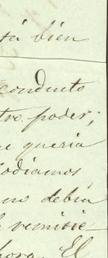 tá bien
conducto
tro. poder;
e queria
odiamos
nos debia
remitie
hora. El